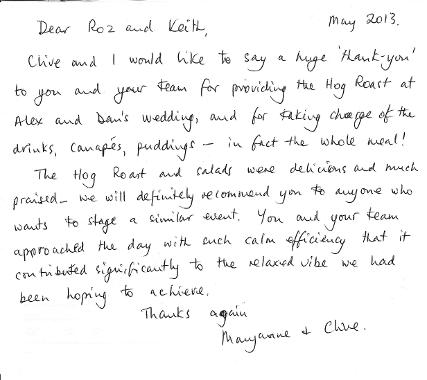 May 2013.
Dear Roz and Keith,
Clive and I would like to say a huge 'thank-you'
to you and your team for providing the Hog Roast at
Alex and Dan's wedding, and for taking charge of the
drinks, canapés, puddings – in fact the whole meal!
The Hog Roast and salads were delicious and much
praised – we will definitely recommend you to anyone who
wants to stage a similar event. You and your team
approached the day with such calm efficiency that it
contributed significantly to the relaxed vibe we had
been hoping to achieve.
Thanks again
Maryanne & Clive.